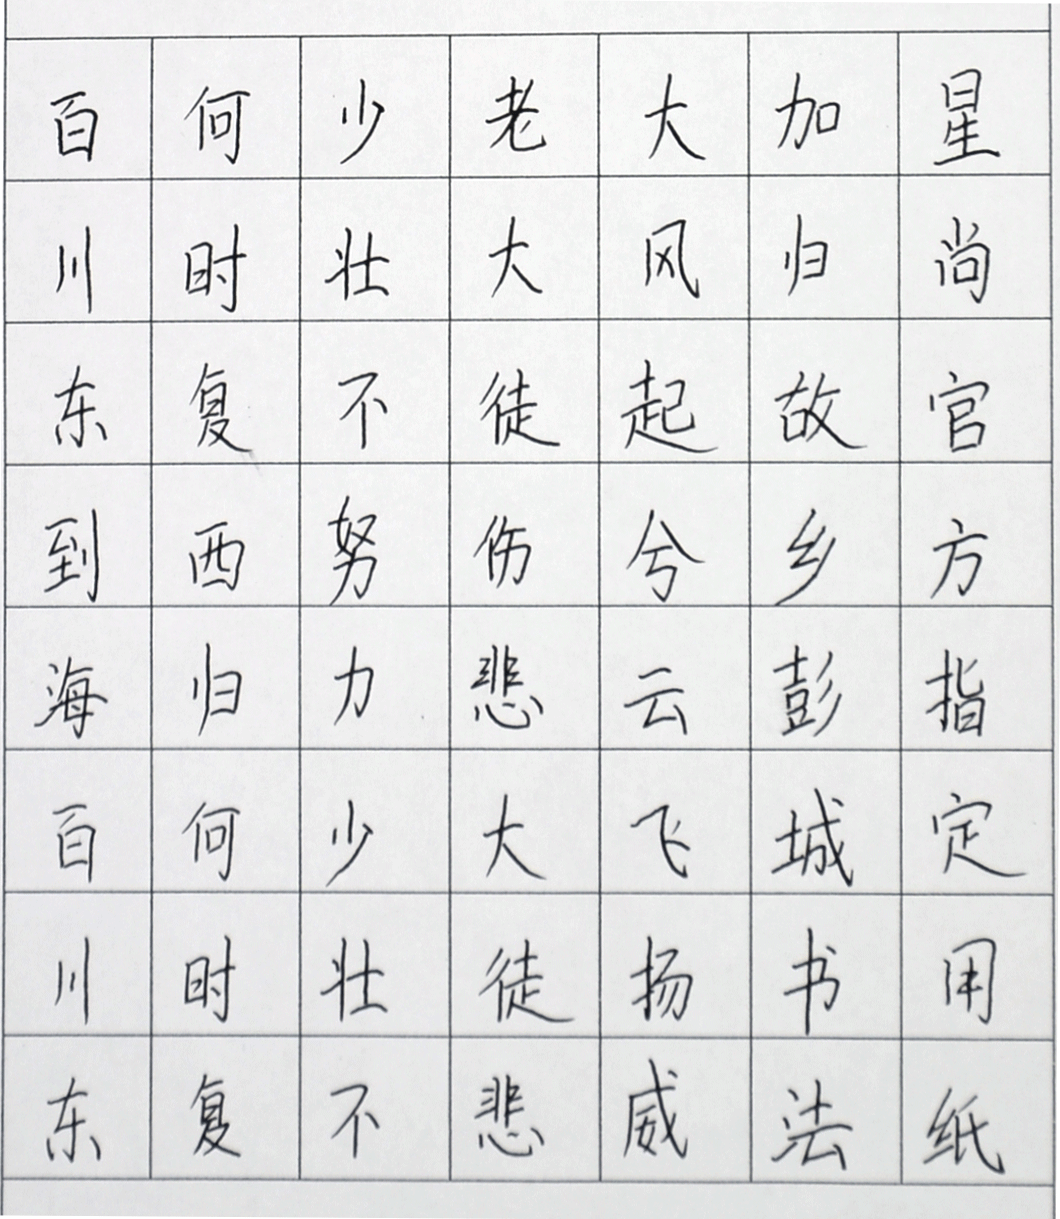 百川东到海百川东
何时复西归何时复
少壮不努力少壮不
老大徒伤悲大徒悲
大风起兮云飞扬威
加归故乡彭城书法
星尚官方指定用纸